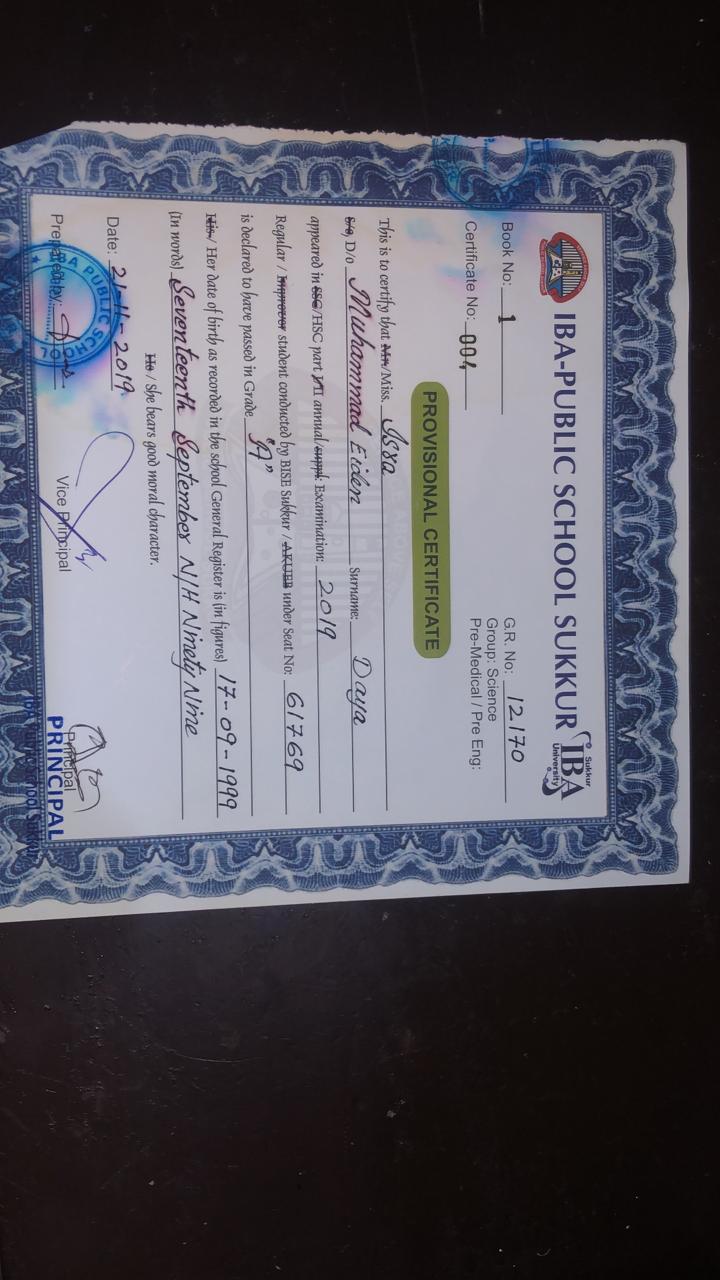 IBA-PUBLIC SCHOOL SUKKUR
Sukkur
IBA
University
Book No: 1
G.R. No: 12170
Group: Science
Certificate No: 004
Pre-Medical / Pre Eng:
PROVISIONAL CERTIFICATE
This is to certify that Mr/Miss. Isra
S/o, D/o Muhammad Eiden Surname: Daya
appeared in SSC/HSC part I/II annual/suppl: Examination: 2019
Regular / Improver student conducted by BISE Sukkur / AKUEB under Seat No: 61769
is declared to have passed in Grade "A"
His / Her date of birth as recorded in the school General Register is (in figures) 17-09-1999
(In words) Seventeenth September N/H Ninety Nine
He / She bears good moral character.
Date: 21-11-2019
Prepared by:
Vice Principal
Principal
PRINCIPAL
IBA Public School Sukkur
IBA PUBLIC SCHOOL